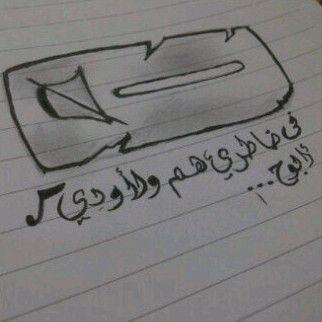 في خاطريَ هم ولاودي
ابوح...!